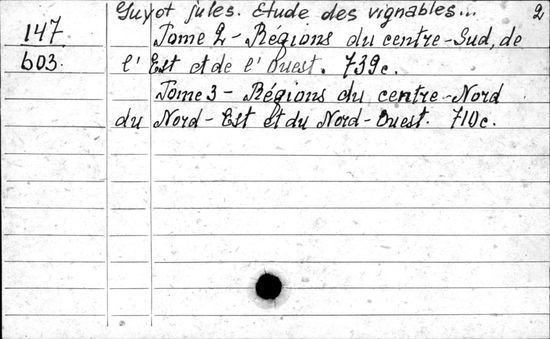 Guyot jules. Etude des vignables... 2
147 Tome 2 - Régions du centre-Sud, de
603. l'Est et de l'Ouest. 739c.
Tome 3 - Régions du centre-Nord
du Nord-Est et du Nord-Ouest. 710c.